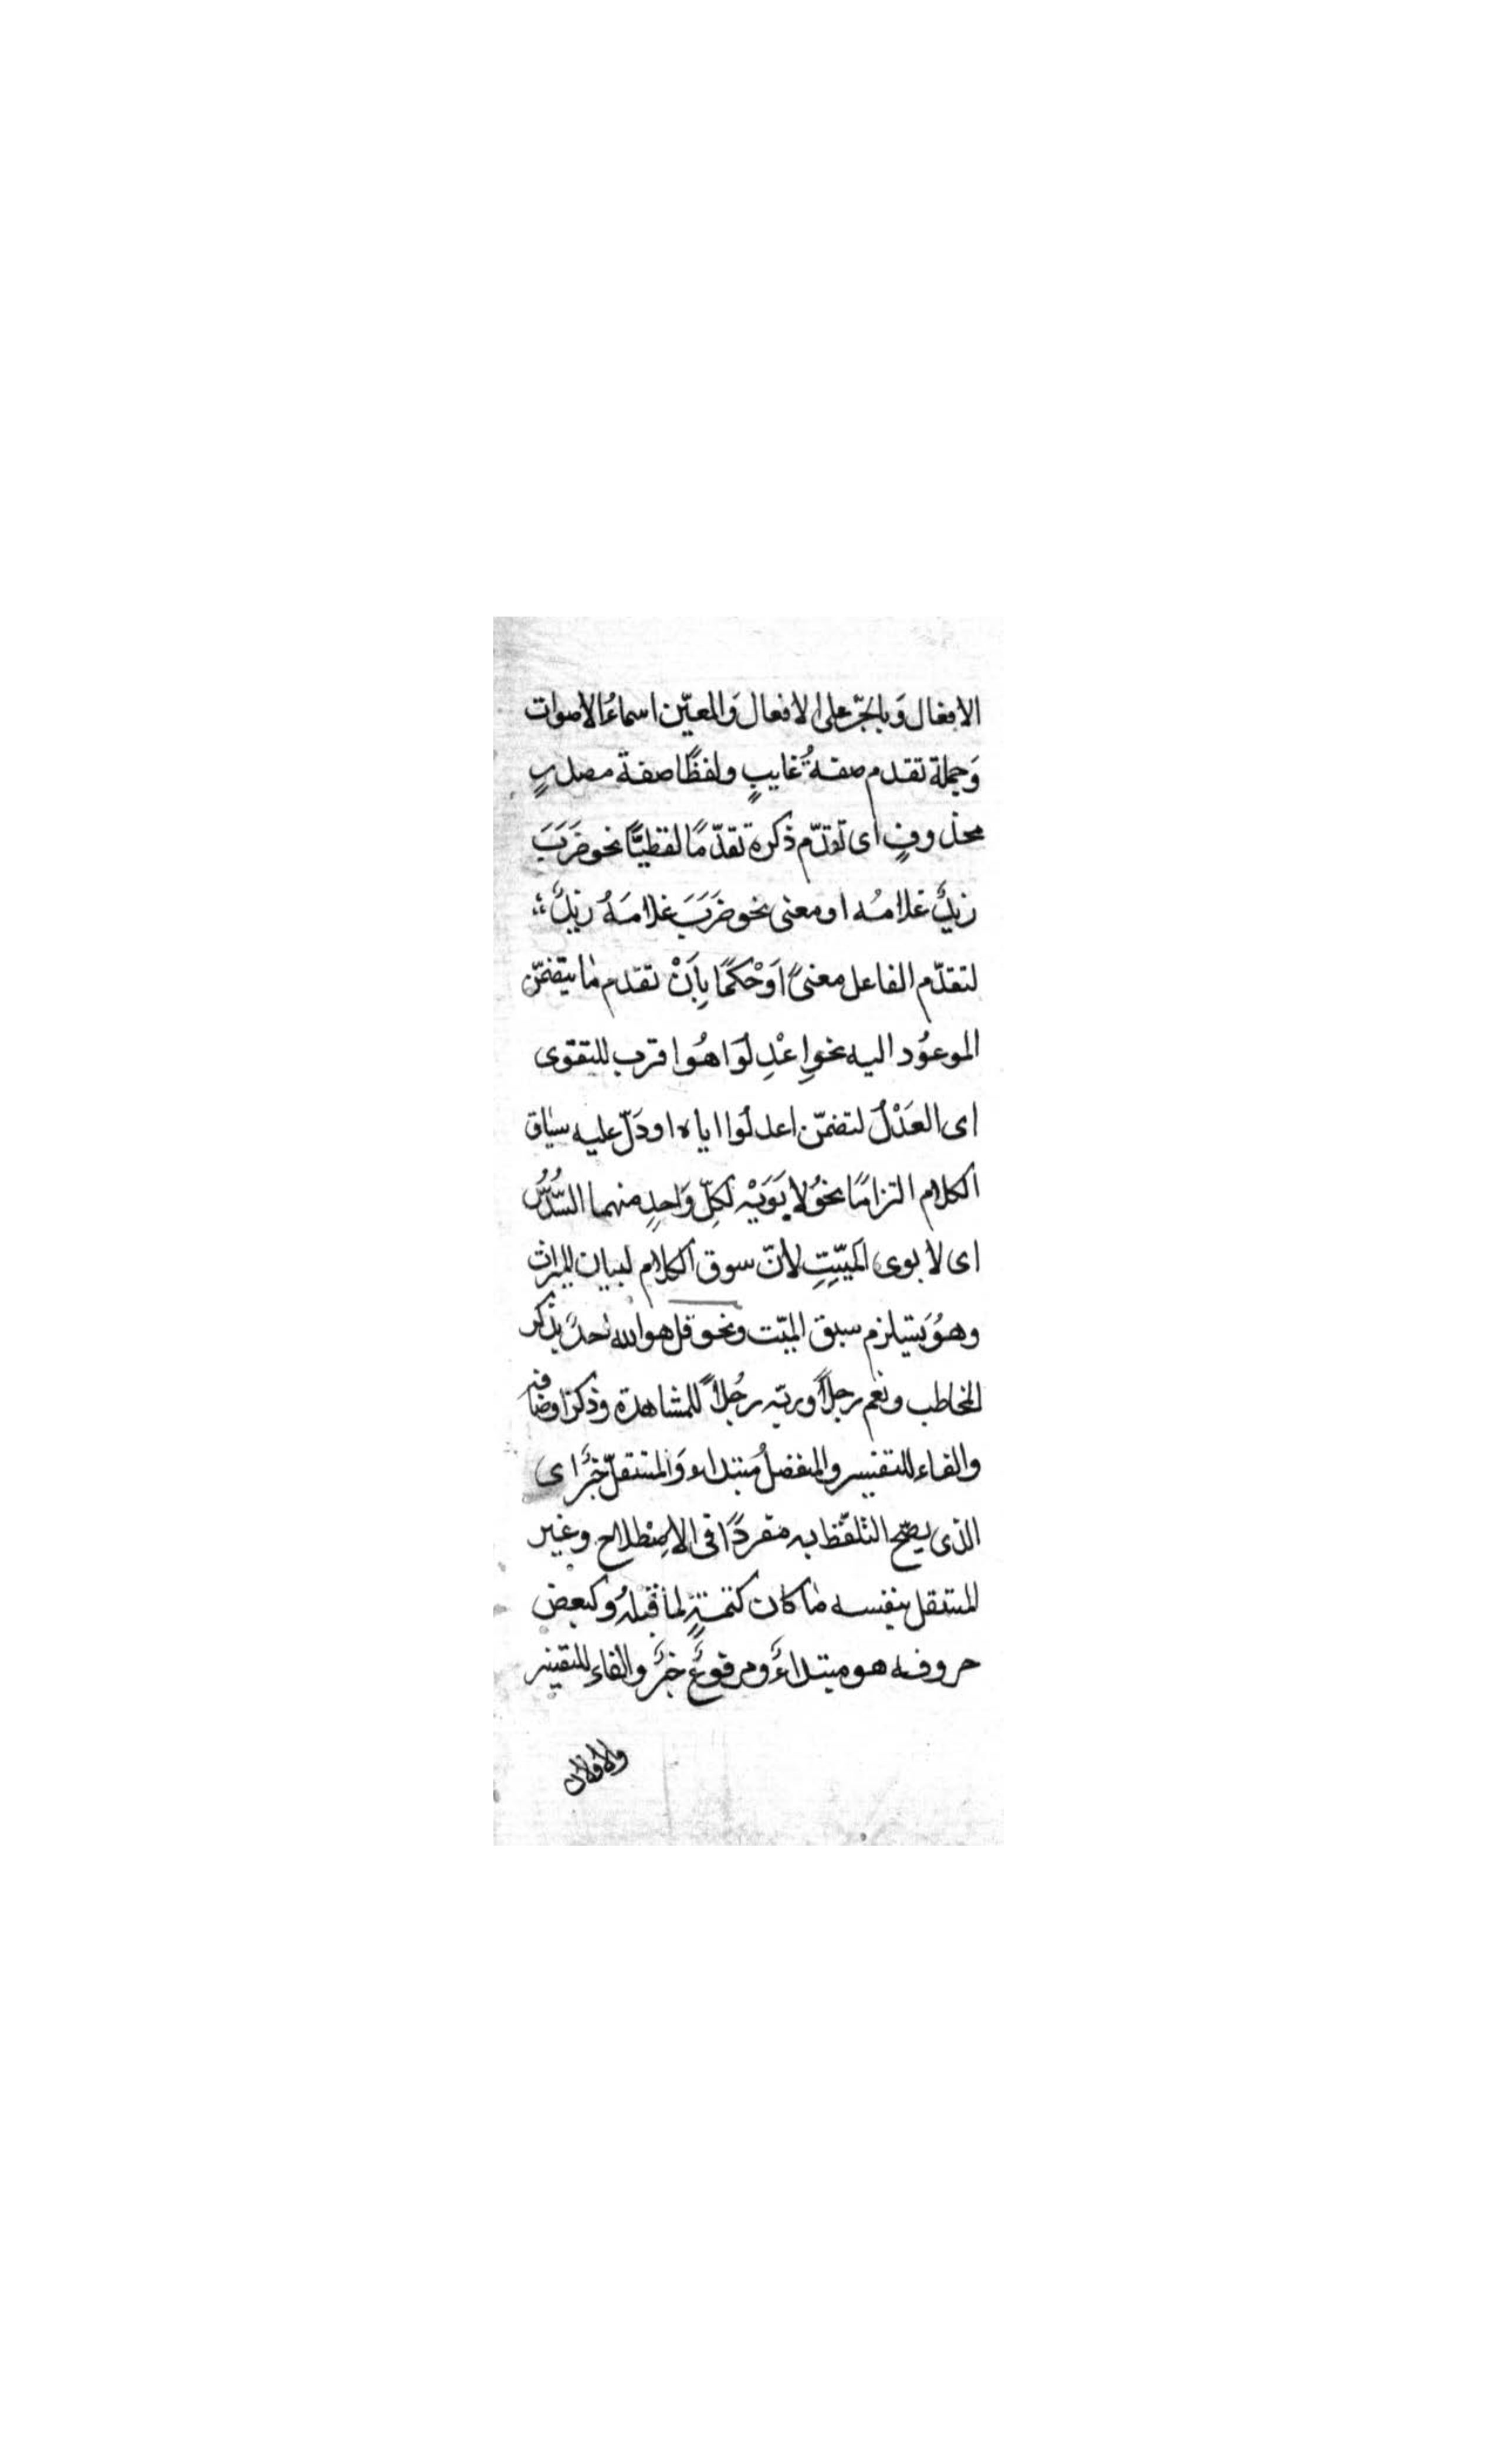 الافعال وَبالجرّ على الافعال وَالمعيّن اسماءُ الاصوات
وَجملة تقدم صفةُ غايبٍ ولفظًا صفة مصدرٍ
محذوفٍ اى تقدّم ذكره تقدّمًا لفظيًّا نحو ضَرَبَ
زيدٌ غلامُه او معنى نحو ضَرَبَ غلامَهُ زيدٌ
لتقدّم الفاعل معنىً اَوْحكمًا بِاَنْ تقدم ما يتضمّن
الموعُود اليه نحو اِعْدِلُوَا هُوا قرب للتقوى
اى العَدْلُ لتضمّن اعدلُوا اياه او دَلّ عليه سياق
الكلام التزامًا نحوُ لابَوَيْه لكلّ وَاحدٍ منهما السّدُسُ
اى لابوى الميّتِ لأنّ سوق الكلام لبيان الميراث
وهوُ يَستلزم سبق الميّت ونحو قل هو الله احدٌ بذكر
المخاطب ونعم رجلاً وربّه رجُلاً للمشاهدة وذكر
والفاء للتفسير والمنفصلُ مُبتداء وَالمستقلّ خبرٌ اى
الذى يصحّ التلفّظ به مفردًا فى الاصْطلاح وغير
المستقل بنفسه ما كان كتتمّةٍ لما قبلهُ وكبعض
حروفه هو مبتداءٌ ومرفوعٌ خبرٌ والفاء للتفسير
والاولان